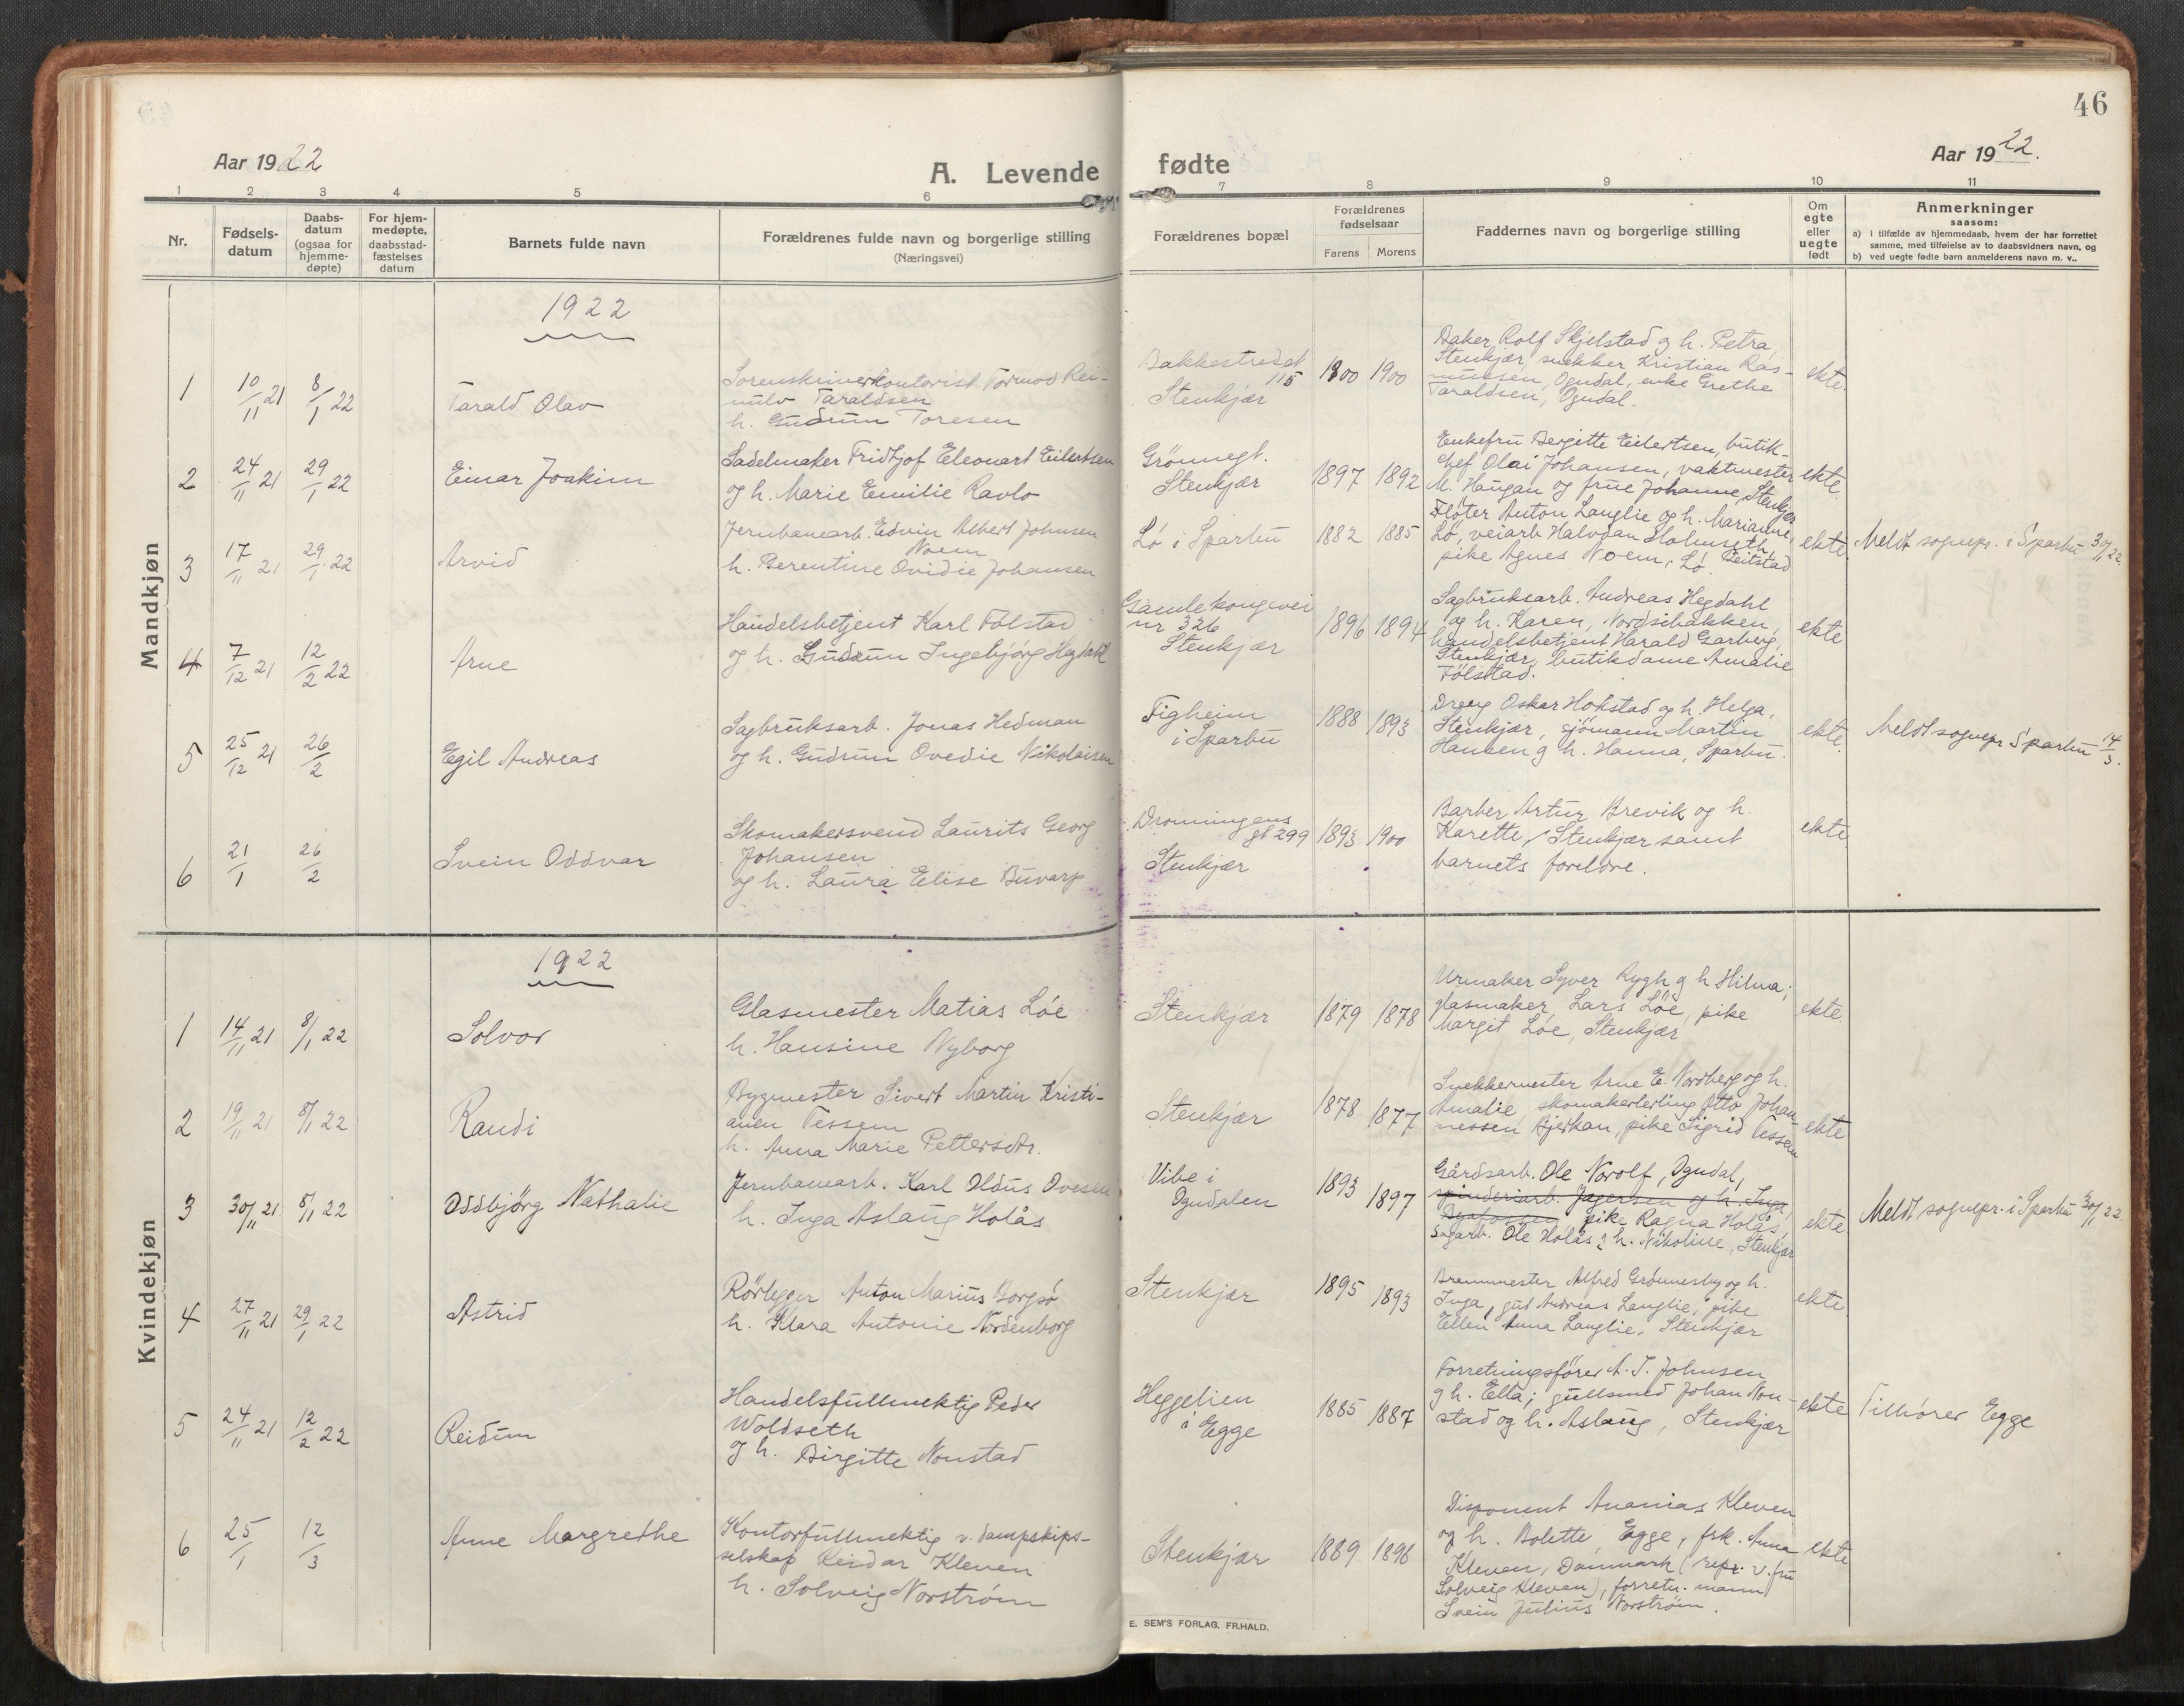 46
Aar 1922
A. Levende fødte
Aar 1922.
1 2 3 4 5 6 7 8 9 10 11
Nr.
Fødselsdatum
Daabsdatum (ogsaa for hjemmedøpte)
For hjemmedøpte, daabsstadfæstelses datum
Barnets fulde navn
Forældrenes fulde navn og borgerlige stilling
(Næringsvei)
Forældrenes bopæl
Forældrenes fødselsaar
Farens Morens
Faddernes navn og borgerlige stilling
Om egte eller uegte født
Anmerkninger
saasom:
a) i tilfælde av hjemmedaab, hvem der har forrettet
samme, med tilføielse av to daabsvidners navn, og
b) ved uegte fødte barn anmelderens navn m. v..
Mandkjøn
1922
1 10/11 21 8/1 22 Tarald Olav
Sorenskriverkontorist Tormod Rei-
nulv Taraldsen
h. Gudrun Toresen
Bakkestredet
115
Stenkjær
1900 1900
Baker Rolf Skjelstad og h. Petra,
Stenkjær, snekker Kristian Ras-
mussen, Ogndal, enke Grethe
Taraldsen, Ogndal.
ekte.
2 24/11 21 29/1 22 Einar Joakim
Sadelmaker Fridtjof Eleonart Eilertsen
og h. Marie Emilie Ravlo
Grönnegt.
Stenkjær
1897 1892
Enkefru Bergitte Eilertsen, butik-
chef Olai Johansen, vaktmester
M. Haugan og frue Johanne, Stenkjær
ekte.
3 17/11 21 29/1 22 Arvid
Jernbanearb. Edvin Albert Johnsen
Noem
h. Berentine Ovidie Johansen
Lö i Sparbu
1882 1885
Flöter Anton Langlie og h. Marianne,
Lö, veiarb Halvdan Holmseth,
pike Agnes Noem, Lö. Beitstad
ekte.
Meldt sognepr. i Sparbu 30/1 22.
4 7/12 21 12/2 22 Arne
Handelsbetjent Karl Fölstad
og h. Gudrun Ingebjörg Hegdahl
Gamle kongevei
nr 326
Stenkjær
1896 1894
Sagbruksarb. Andreas Hegdahl
og h. Karen, Nordsibakken,
handelsbetjent Harald Garberg,
Stenkjær, butikdame Amalie
Fölstad.
ekte
5 25/12 21 26/2 Egil Andreas
Sagbruksarb. Jonas Hedman
og h. Gudrun Ovedie Nikolaisen
Figheim
i Sparbu
1888 1893
Dreng Oskar Hokstad og h. Helga,
Stenkjær, sjömann Martin
Hansen g h. Hanna, Sparbu.
ekte.
Meldt sognepr Sparbu 14/3.
6 21/1 26/2 Svein Oddvar
Skomakersvend Laurits Georg
Johansen
og h. Laura Elise Buvarp
Dronningens
gt 299
Stenkjær
1893 1900
Barber Artur Brevik og h.
Karette, Stenkjær samt
barnets foreldre.
ekte
Kvindekjøn
1922
1 14/11 21 8/1 22 Solvor
Glasmester Matias Löe
h. Hansine Nyborg
Stenkjær
1879 1878
Urmaker Syver Rygh g h Hilma;
glasmaker Lars Löe, pike
Margit Löe, Stenkjær
ekte
2 19/11 21 8/1 22 Randi
Bygmester Sivert Martin Kristi-
ansen Tessem
h. Anna Marie Pettersdtr.
Stenkjær
1878 1877
Snekkermester Arne E. Nordberg og h.
Amalie, skomakerlerling Otto Johan-
nessen Bjerkan, pike Sigrid Tessem
ekte
3 30/11 21 8/1 22 Oddbjörg Nathalie
Jernbanearb. Karl Oldus Ovesen
h. Inga Aslaug Holås
Vibe i
Ogndalen
1893 1897
Gårdsarb. Ole Norolf, Ogndal,
spinderiarb. Jagersen og h. Inga,
pike Ragna Holås,
Sagarb. Ole Holås g h. Nikoline, Stenkjær
ekte
Meldt sognepr. i Sparbu 30/1 22.
4 27/11 21 29/1 22 Astrid
Rörlegger Anton Marius Borgsö
h. Klara Antonie Nordenborg
Stenkjær
1895 1893
Brannmester Alfred Grönnesby og h.
Inga, gut Andreas Langlie, pike
Ellen Anna Langlie, Stenkjær
ekte
5 24/11 21 12/2 22 Reidun
Handelsfullmektig Peder
Woldseth
og h. Birgitte Nonstad
Heggelien
i Egge
1885 1887
Forretningsförer A. T. Johnsen
g h. Ella; gullsmed Johan Non-
stad og h. Aslaug, Stenkjær
ekte
Tilhörer Egge
6 25/1 12/3 Anne Margrethe
Kontorfullmektig v. dampskips-
selskap Reidar Kleven
h. Solveig Norström
Stenkjær
1889 1896
Disponent Ananias Kleven
og h. Bolette, Egge, frk. Anna
Kleven, Danmark (repr. v. fru
Solveig Kleven), forretn. mann
Svein Julius Norström.
ekte
E. SEM'S FORLAG, FR.HALD.